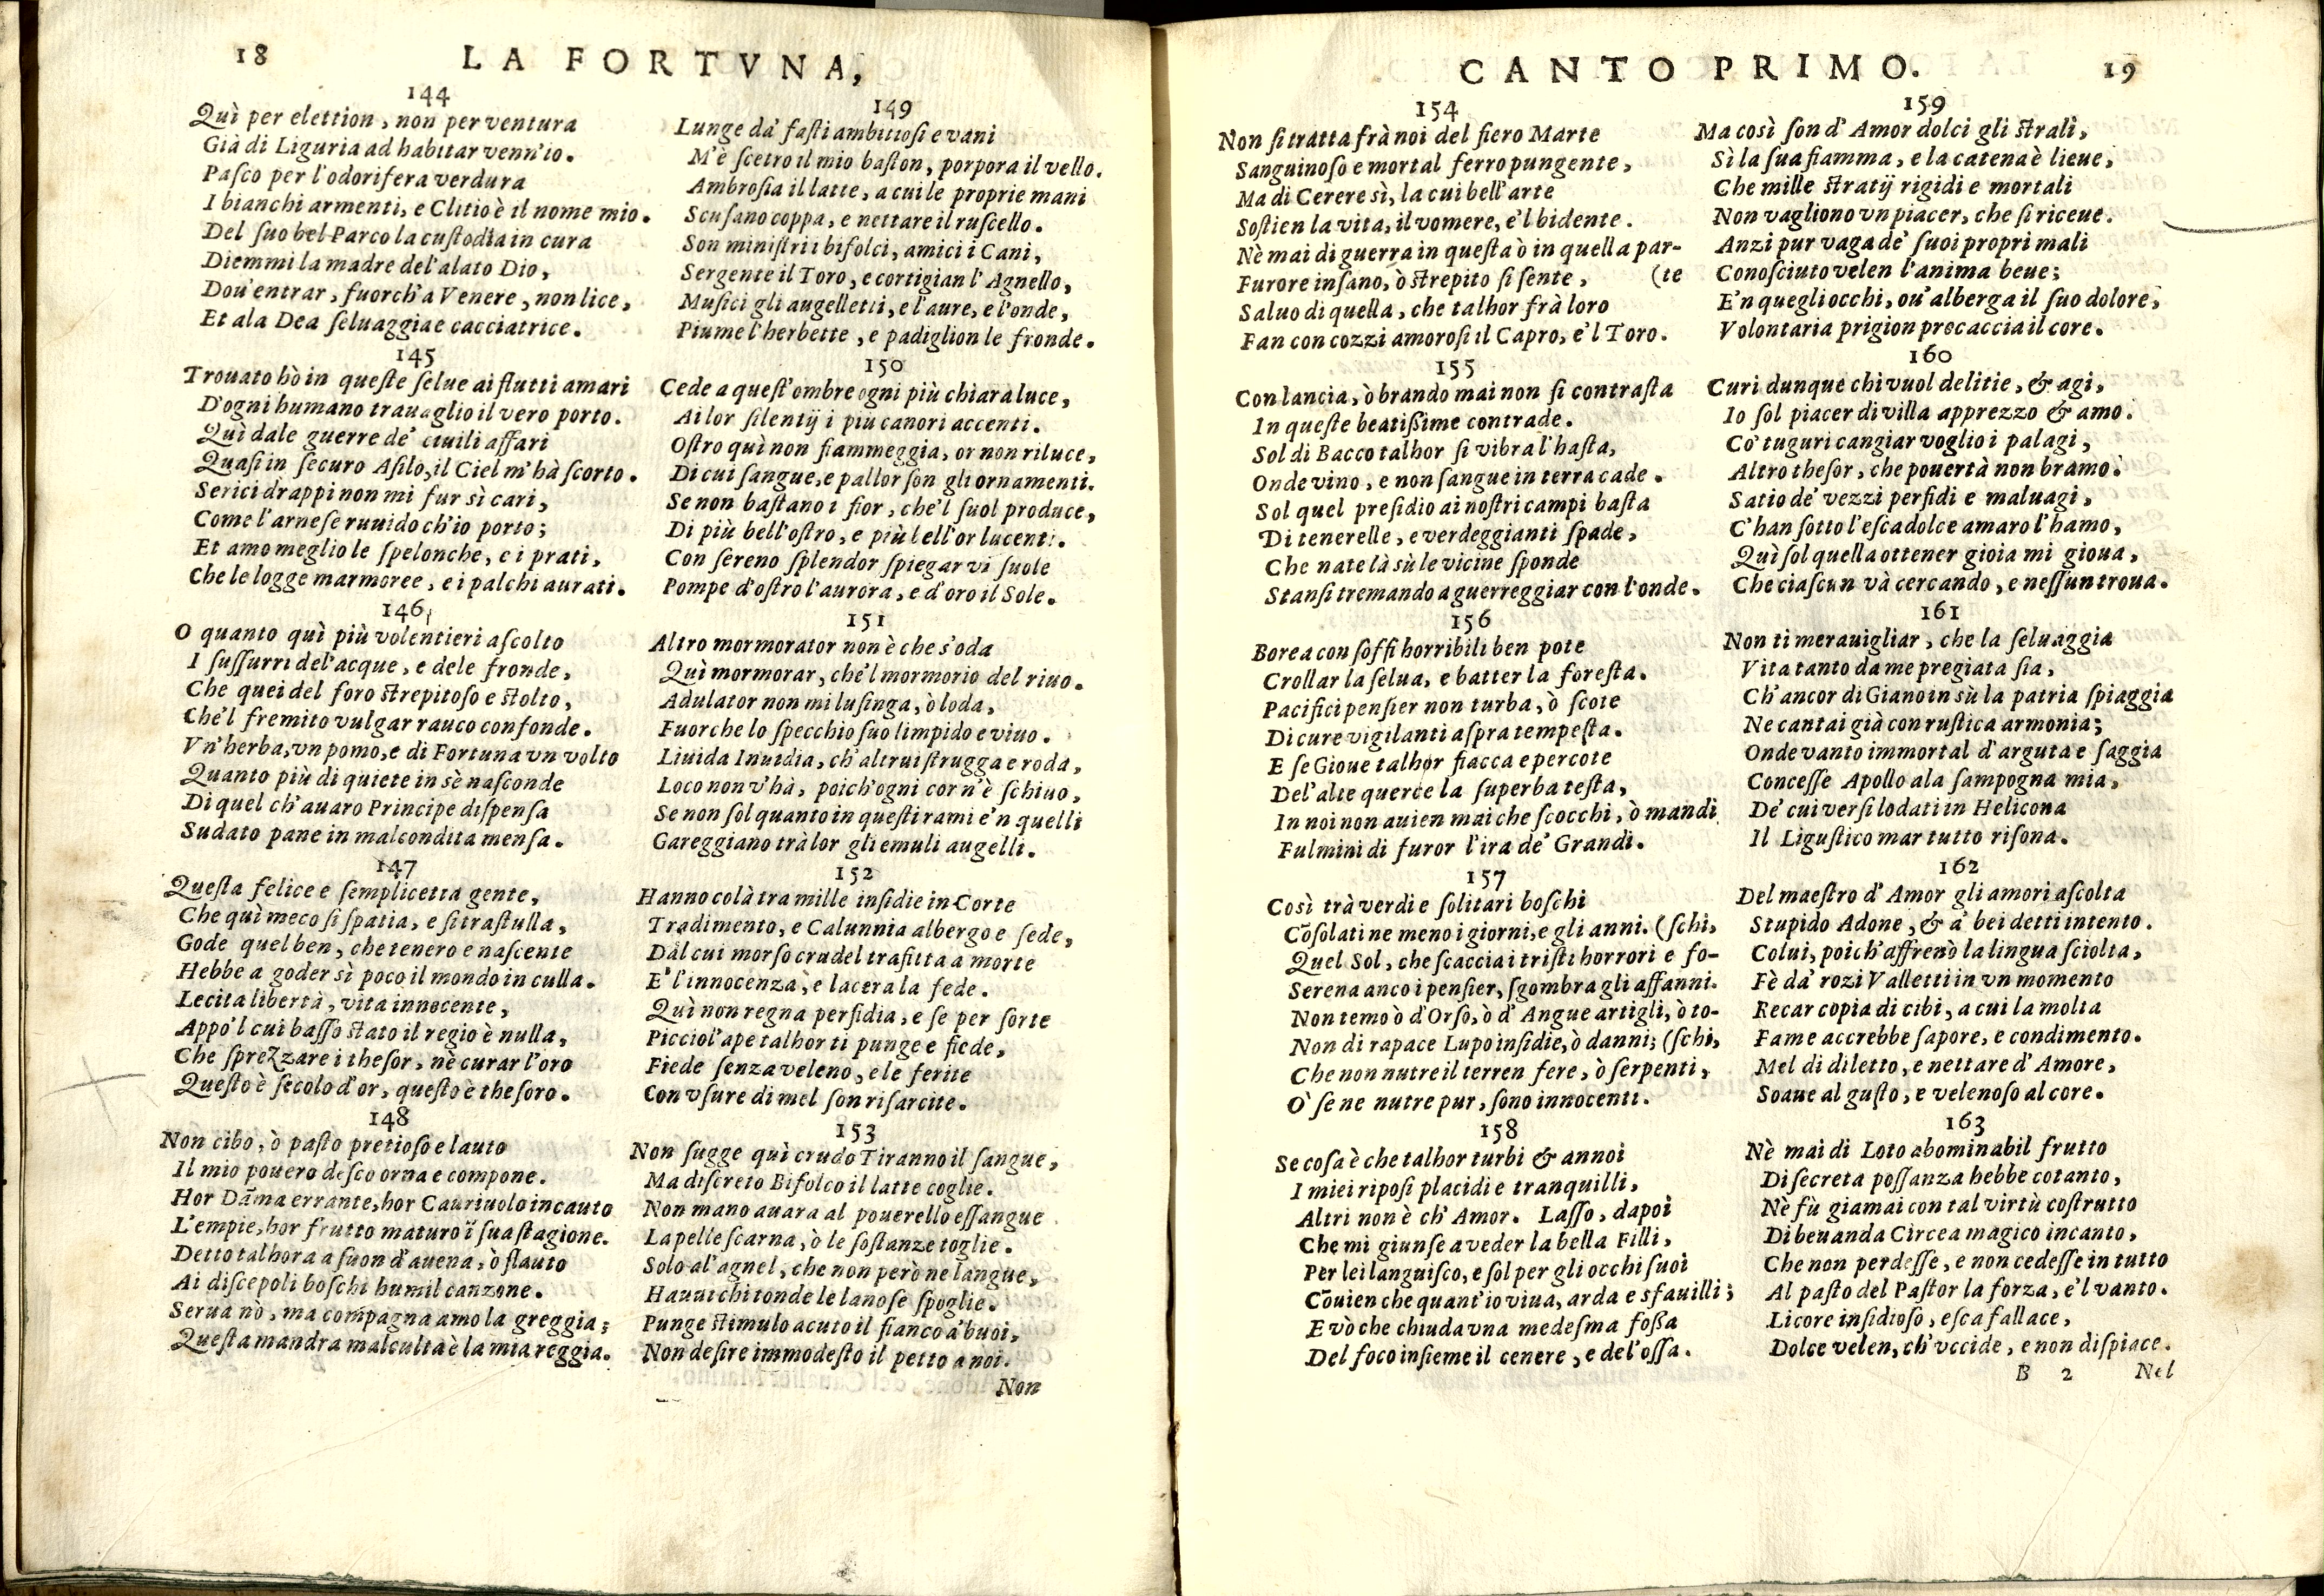 18
LA FORTVNA,
144
Quì per elettion, non per ventura
Già di Liguria ad habitar venn'io.
Paſco per l'odorifera verdura
I bianchi armenti, e Clitio è il nome mio.
Del ſuo bel Parco la cuſtodia in cura
Diemmi la madre del'alato Dio,
Dou'entrar, fuorch'a Venere, non lice,
Et ala Dea ſeluaggia e cacciatrice.
145
Trouato hò in queſte ſelue ai flutti amari
D'ogni humano trauaglio il vero porto.
Quì dale guerre de' ciuili affari
Quaſi in ſecuro Aſilo, il Ciel m'hà ſcorto.
Serici drappi non mi fur sì cari,
Come l'arneſe ruuido ch'io porto;
Et amo meglio le ſpelonche, e i prati,
Che le logge marmoree, e i palchi aurati.
146
O quanto quì più volentieri aſcolto
I ſuſſurri del'acque, e dele fronde,
Che quei del foro ſtrepitoſo e ſtolto,
Che'l fremito vulgar rauco confonde.
Vn'herba, vn pomo, e di Fortuna vn volto
Quanto più di quiete in sè naſconde
Di quel ch'auaro Principe diſpenſa
Sudato pane in malcondita menſa.
147
Queſta felice e ſemplicetta gente,
Che quì meco ſi ſpatia, e ſi traſtulla,
Gode quel ben, che tenero e naſcente
Hebbe a goder sì poco il mondo in culla.
Lecita libertà, vita innocente,
Appo'l cui baſſo ſtato il regio è nulla,
Che ſprezzare i theſor, nè curar l'oro
Queſto è ſecolo d'or, queſto è theſoro.
148
Non cibo, ò paſto pretioſo e lauto
Il mio pouero deſco orna e compone.
Hor Dāma errante, hor Cauriuolo incauto
L'empie, hor frutto maturo ī ſua ſtagione.
Detto talhora a ſuon d'auena, ò flauto
Ai diſcepoli boſchi humil canzone.
Serua nò, ma compagna amo la greggia;
Queſta mandra malculta è la mia reggia.
149
Lunge da' faſti ambitioſi e vani
M'è ſcetro il mio baſton, porpora il vello.
Ambroſia il latte, a cui le proprie mani
Scuſano coppa, e nettare il ruſcello.
Son miniſtri i bifolci, amici i Cani,
Sergente il Toro, e cortigian l'Agnello,
Muſici gli augelletti, e l'aure, e l'onde,
Piume l'herbette, e padiglion le fronde.
150
Cede a queſt'ombre ogni più chiara luce,
Ai lor ſilentij i più canori accenti.
Oſtro quì non fiammeggia, or non riluce,
Di cui ſangue, e pallor ſon gli ornamenti.
Se non baſtano i fior, che'l ſuol produce,
Di più bell'oſtro, e più bell'or lucenti.
Con ſereno ſplendor ſpiegar vi ſuole
Pompe d'oſtro l'aurora, e d'oro il Sole.
151
Altro mormorator non è che s'oda
Quì mormorar, che'l mormorio del riuo.
Adulator non mi luſinga, ò loda,
Fuorche lo ſpecchio ſuo limpido e viuo.
Liuida Inuidia, ch'altrui ſtrugga e roda,
Loco non v'hà, poich'ogni cor n'è ſchiuo,
Se non ſol quanto in queſti rami e'n quelli
Gareggiano trà lor gli emuli augelli.
152
Hanno colà tra mille inſidie in Corte
Tradimento, e Calunnia albergo e ſede,
Dal cui morſo crudel trafitta a morte
E' l'innocenza, e lacera la fede.
Quì non regna perfidia, e ſe per ſorte
Picciol'ape talhor ti punge e fiede,
Fiede ſenza veleno, e le ferite
Con vſure di mel ſon riſarcite.
153
Non ſugge quì crudo Tiranno il ſangue,
Ma diſcreto Bifolco il latte coglie.
Non mano auara al pouerello eſſangue
La pelle ſcarna, ò le ſoſtanze toglie.
Solo al'agnel, che non però ne langue,
Hauui chi tonde le lanoſe ſpoglie.
Punge ſtimulo acuto il fianco a' buoi,
Non deſire immodeſto il petto a noi.
Non
CANTO PRIMO.
19
154
Non ſi tratta frà noi del fiero Marte
Sanguinoſo e mortal ferro pungente,
Ma di Cerere sì, la cui bell'arte
Soſtien la vita, il vomere, e'l bidente.
Nè mai di guerra in queſta ò in quella par-
Furore inſano, ò ſtrepito ſi ſente, (te
Saluo di quella, che talhor frà loro
Fan con cozzi amoroſi il Capro, e'l Toro.
155
Con lancia, ò brando mai non ſi contraſta
In queſte beatiſſime contrade.
Sol di Bacco talhor ſi vibra l'haſta,
Onde vino, e non ſangue in terra cade.
Sol quel preſidio ai noſtri campi baſta
Di tenerelle, e verdeggianti ſpade,
Che nate là sù le vicine ſponde
Stanſi tremando a guerreggiar con l'onde.
156
Borea con ſoffi horribili ben pote
Crollar la ſelua, e batter la foreſta.
Pacifici penſier non turba, ò ſcote
Di cure vigilanti aſpra tempeſta.
E ſe Gioue talhor fiacca e percote
Del'alte querce la ſuperba teſta,
In noi non auien mai che ſcocchi, ò mandi
Fulmini di furor l'ira de' Grandi.
157
Così trà verdi e ſolitari boſchi
Cōſolati ne meno i giorni, e gli anni. (ſchi,
Quel Sol, che ſcaccia i triſti horrori e fo-
Serena anco i penſier, ſgombra gli affanni.
Non temo ò d'Orſo, ò d'Angue artigli, ò to-
Non di rapace Lupo inſidie, ò danni; (ſchi,
Che non nutre il terren fere, ò ſerpenti,
O' ſe ne nutre pur, ſono innocenti.
158
Se coſa è che talhor turbi & annoi
I miei ripoſi placidi e tranquilli,
Altri non è ch'Amor. Laſſo, dapoi
Che mi giunſe a veder la bella Filli,
Per lei languiſco, e ſol per gli occhi ſuoi
Cōuien che quant'io viua, arda e sfauilli;
E vò che chiuda vna medeſma foſſa
Del foco inſieme il cenere, e del'oſſa.
159
Ma così ſon d'Amor dolci gli ſtrali,
Sì la ſua fiamma, e la catena è lieue,
Che mille ſtratij rigidi e mortali
Non vagliono vn piacer, che ſi riceue.
Anzi pur vaga de' ſuoi propri mali
Conoſciuto velen l'anima beue;
E'n quegli occhi, ou'alberga il ſuo dolore,
Volontaria prigion procaccia il core.
160
Curi dunque chi vuol delitie, & agi,
Io ſol piacer di villa apprezzo & amo.
Co' tuguri cangiar voglio i palagi,
Altro theſor, che pouertà non bramo.
Satio de' vezzi perfidi e maluagi,
C'han ſotto l'eſca dolce amaro l'hamo,
Quì ſol quella ottener gioia mi gioua,
Che ciaſcun và cercando, e neſſun troua.
161
Non ti merauigliar, che la ſeluaggia
Vita tanto da me pregiata ſia,
Ch'ancor di Giano in sù la patria ſpiaggia
Ne cantai già con ruſtica armonia;
Onde vanto immortal d'arguta e ſaggia
Conceſſe Apollo ala ſampogna mia,
De' cui verſi lodati in Helicona
Il Liguſtico mar tutto riſona.
162
Del maeſtro d'Amor gli amori aſcolta
Stupido Adone, & a' bei detti intento.
Colui, poich'affrenò la lingua ſciolta,
Fè da' rozi Valletti in vn momento
Recar copia di cibi, a cui la molta
Fame accrebbe ſapore, e condimento.
Mel di diletto, e nettare d'Amore,
Soaue al guſto, e velenoſo al core.
163
Nè mai di Loto abominabil frutto
Di ſecreta poſſanza hebbe cotanto,
Nè fù giamai con tal virtù coſtrutto
Di beuanda Circea magico incanto,
Che non perdeſſe, e non cedeſſe in tutto
Al paſto del Paſtor la forza, e'l vanto.
Licore inſidioſo, eſca fallace,
Dolce velen, ch'vccide, e non diſpiace.
B 2 Nel